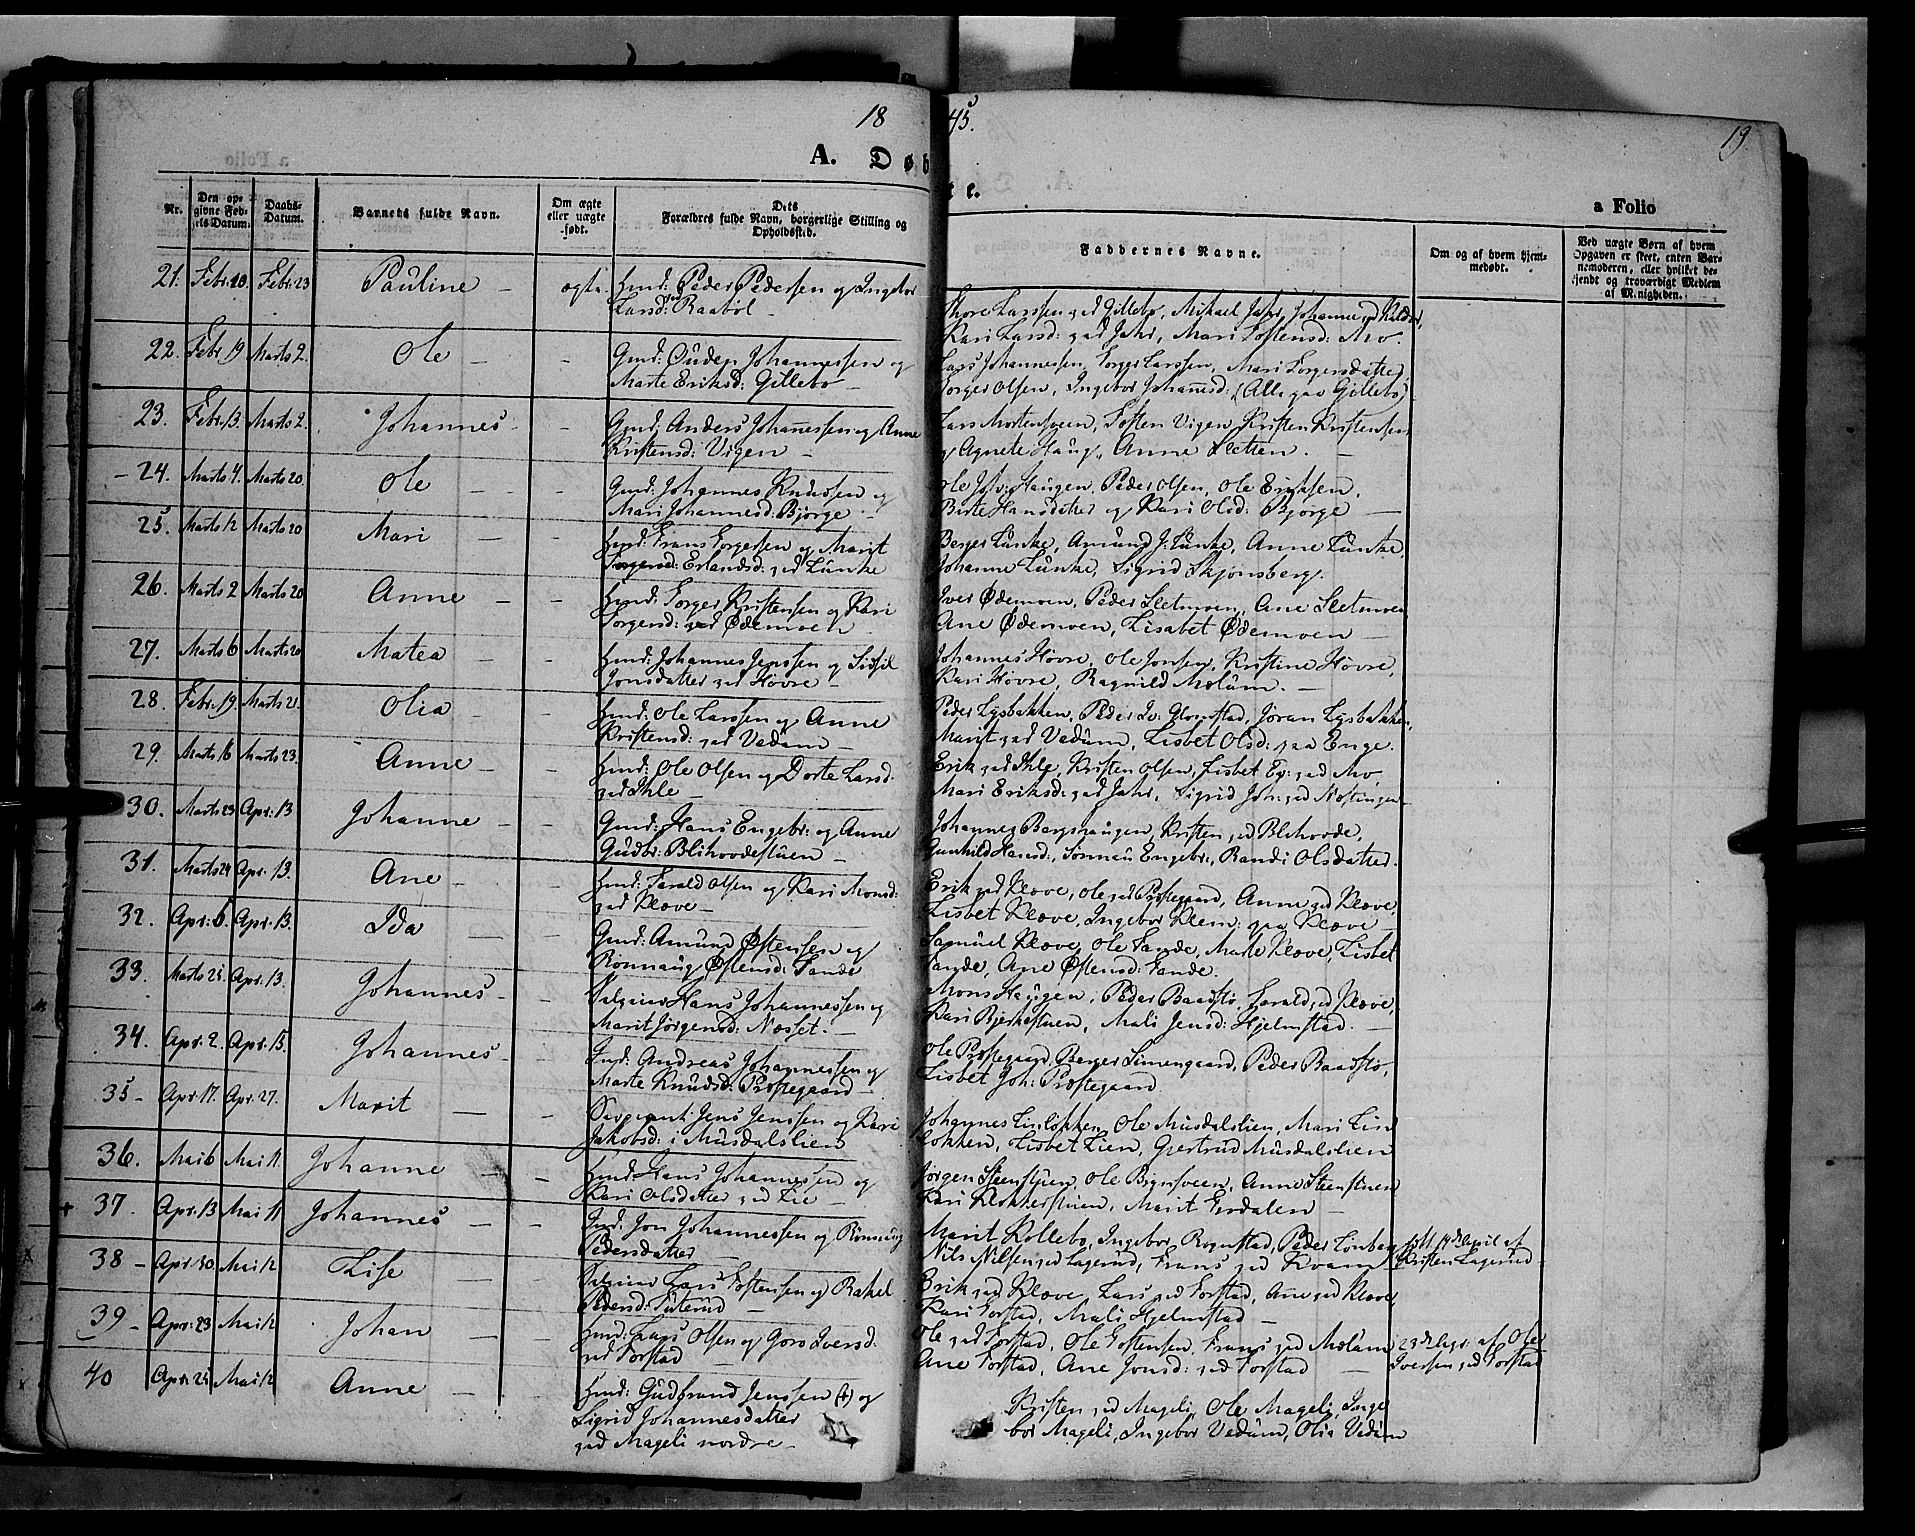 18
45.
19.
A. Døb
t e.
a Folio
Nr.
Den op-
givne Fød-
sels Datum.
Daabs-
Datum.
Barnets fulde Navn.
Om ægte
eller uægte
født.
Dets
Forældres fulde Navn, borgerlige Stilling og
Opholdssted.
Faddernes Navne.
Om og af hvem hjem-
medøbt.
Ved uægte Børn af hvem
Opgaven er skeet, enten Bar-
nemoderen, eller hvilket be-
kjendt og troværdigt Medlem
af Menigheden.
21. Febr: 20. Febr: 23 Pauline – ægte. Hmd: Peder Pedersen og Ingebor
Larsd: Raabøl –
Thore Larssen ved Gillebo, Mikael Jahr, Johanne
Kari Larsd: ved Jahr, Mari Toftensd: Mo.
22. Febr. 19 Marts 2. Ole – – Gmd: Ouden Johannessen og
Marte Eriksd: Gillebo –
Lars Johannessen, Torger Larssen, Mari Torgersdatter
Torger Olsen, Ingebor Johannsd: (Alle paa Gillebo)
23. Febr. 13. Marts 2. Johannes – – Gmd. Anders Johannessen og Anne
Kristensd: Vigen –
Lars Mortensveen, Toften Vigen, Kristen Kristensen
og Agnete Haug, Anne Sletten. –
24. Marts 4. Marts 20. Ole – – Gmd: Johannes Knudssen og
Mari Johannesd: Bjørge –
Ole Joh: Haugen, Peder Olsen, Ole Eriksen,
Birte Hansdatter og Kari Olsd: Bjørge –
25. Marts 12 Marts 20 Mari – – Hmd: Frans Torgersen og Marit
Erlandsd: ved Lunke
Berger Lunke, Amund J: Lunke, Anne Lunke,
Johanne Lunke, Sigrid Skjønsberg.
26. Marts 2 Marts 20 Anne – – Hmd: Torger Kristensen og Kari
Torgersd: ved Ødemoen –
Iver Ødemoen, Peder Sletmoen, Ane Sletmoen
Ane Ødemoen, Lisabet Ødemoen –
27. Marts 6 Marts 20 Matea – – Hmd: Johannes Jenssen og Sidsil
Jonsdatter ved Høvre –
Johannes Høvre, Ole Jonsen, Kristine Høvre,
Kari Høvre, Ragnild Molum. –
28. Febr. 19. Marts 21. Olia – – Hmd: Ole Larssen og Anne
Kristensd: ved Vedum –
Peder Lysbakken, Peder Iv: Glomstad, Jøran Lysbakken,
Marit ved Vedum, Lisbet Olsd: paa Enge.
29. Marts 16 Marts 23. Anne – – Hmd: Ole Olsen og Dorte Larsd.
ved Ihle –
Erik ved Ihle, Kristen Olsen, Lisbet Ev: ved Mo,
Mari Eriksd: ved Jahr, Sigrid Joh: ved Nostingen
30. Marts 23 Apr: 13 Johanne – – Gmd: Hans Engebr: og Anne
Gudbr: Blihovdestuen –
Johannes Bergshaugen, Kristen ved Blihovde,
Gunhild Hansd:, Sønnau Engebr:, Randi Olsdatter.
31. Marts 24 Apr: 13. Ane – – Hmd: Harald Olsen og Kari Monsd:
ved Kløve –
Erik ved Kløve, Ole ved Prestegaard, Anne ved Kløve,
Lisbet Kløve, Ingebor Klem: paa Kløve –
32. Apr: 6. Apr: 13. Ida – – Gmd: Amund Østensen og
Rønnaug Østensd: Tande
Samuel Kløve, Ole Tande, Marte Kløve, Lisbet
Tande, Ane Østensd: Tande.
33. Marts 25. Apr: 13. Johannes – – Selveier Hans Johannessen og
Marit Jørgensd: Nosset. –
Mons Haugen, Peder Baadstø, Harald ved Kløve,
Kari Bjerkestuen, Mali Jensd: Hjelmstad. –
34. Apr: 2. Apr: 13. Johannes – – Gmd: Andreas Johannessen og
Marte Knudsd: Prestegaard –
Ole Prestegaard, Berger Simengaard, Peder Baadstø,
Lisbet Joh: Prestegaard.
35 – Apr: 17. Apr. 27. Marit – – Sergeant: Jens Jenssen og Kari
Jakobsd: i Musdalslien
Johannes Linløkken, Ole Musdalslien, Mari Lin
løkken, Lisbet Lien, Gjertrud Musdalslien
36. Mai 6 Mai 11. Johanne – – Hmd: Hans Johannessen og
Kari Olsdatter ved Lie –
Jørgen Steenstuen, Ole Bjønsveen, Anne Steenstuen
Kari Klokkerstuen, Marit Evdalen –
+ 37. Apr: 13 Mai 11 Johannes – – Gmd: Jon Johannessen og Rønnaug
Pedersdatter –
Marit Kollebo, Ingebor Rognstad, Peder Lonberg
Nils Nilssen ved Lagerud, Frans ved Kvam
14de April af
Kristen Lagerud
38 – Apr: 30. Mai 12 Lise – – Selveier Lars Toftensen og Rakel
Pedersd: Suterud –
Erik ved Kløve, Lars ved Torstad, Ane ved Kløve,
Kari Torstad, Mali Hjelmstad –
39 – Apr: 23 Mai 12 Johan – – Hmd: Lars Olsen og Goro Iversd:
ved Torstad –
Ole ved Torstad, Ole Toftensen, Frans ved Molum
Ane Torstad, Ane Jonsd: ved Torstad –
23de Apr: af Ole
Iversen ved Torstad
40 Apr: 25 Mai 12 Anne – – Hmd: Gudbrand Jenssen (+) og
Sigrid Johannesdatter
ved Mageli nordre –
Kristen ved Mageli, Ole Mageli, Inge
bor Mageli, Ingebor Vedum, Olia Vedum